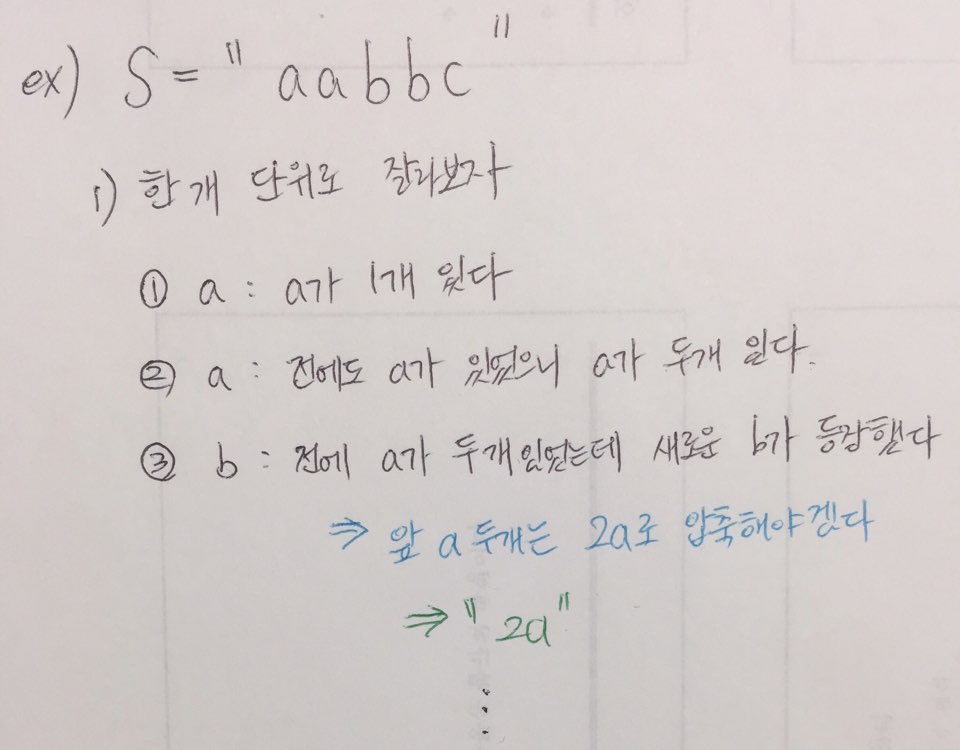 ex) S = " aabbc "
1) 한개 단위로 잘라보자
① a : a가 1개 있다
② a : 전에도 a가 있었으니 a가 두개 있다.
③ b : 전에 a가 두개있었는데 새로운 b가 등장했다
⇒ 앞 a 두개는 2a로 압축해야겠다
⇒ " 2a "
⋮